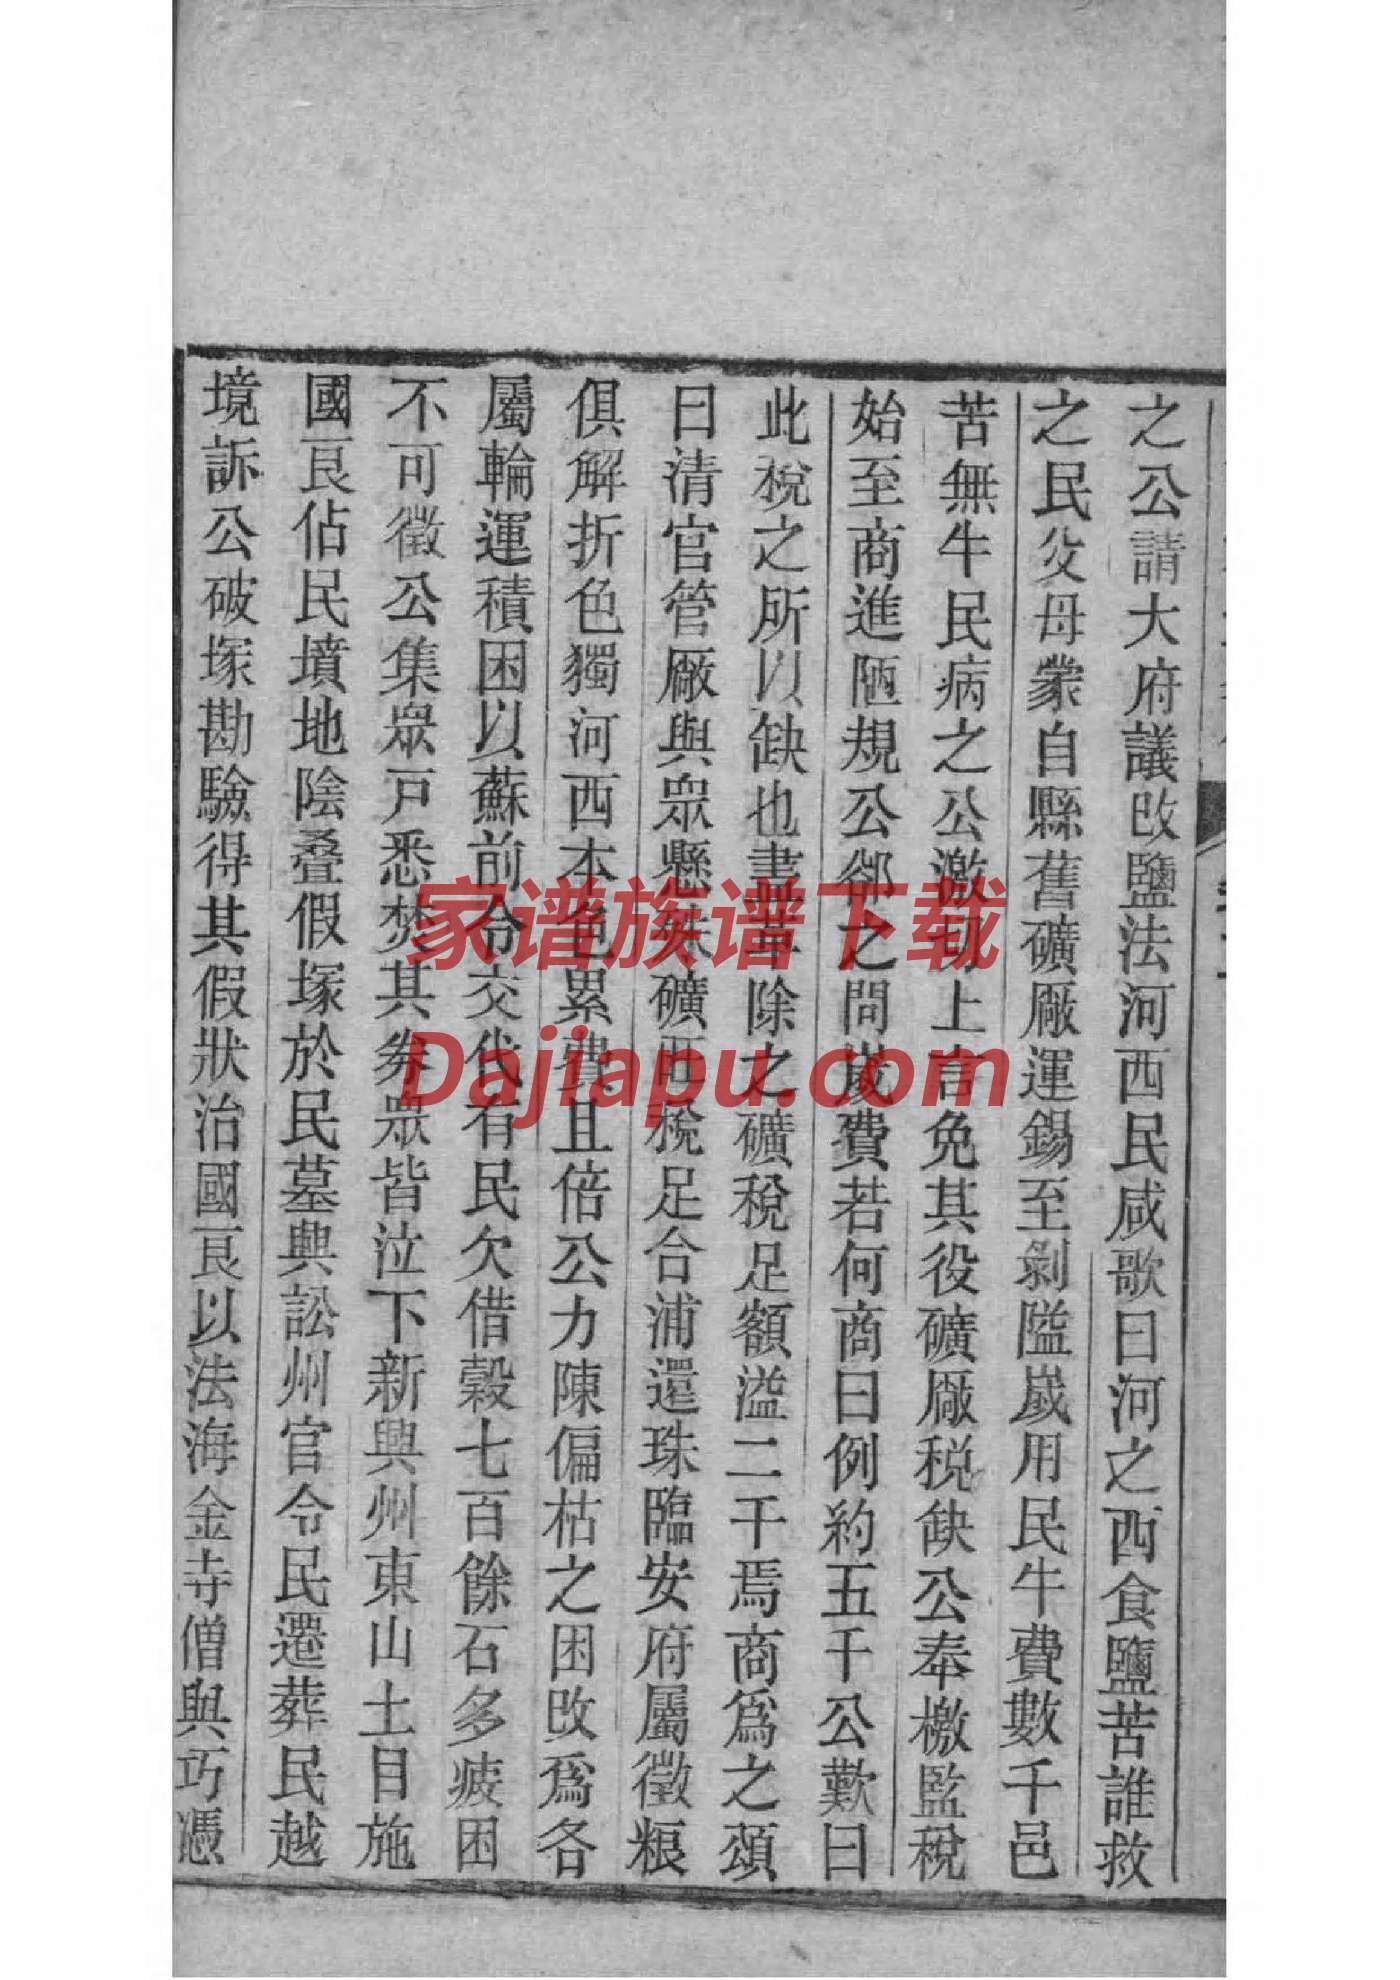 之公請大府議改鹽法河西民咸歌曰河之西食鹽苦誰救
之民父母蒙自縣舊礦厰運錫至剝隘嵗用民牛費數千邑
苦無牛民病之公激切上言免其役礦厰税缺公奉檄監稅
始至商進陋規公郤之問嵗費若何商曰例約五千公歎曰
此稅之所以缺也盡革除之礦稅足額溢二千焉商爲之頌
曰清官管厰與眾懸殊礦西稅足合浦還珠臨安府屬徵粮
俱解折色獨河西本色累費且倍公力陳偏枯之困改爲各
屬輪運積困以蘇前令交代有民欠借穀七百餘石多疲困
不可徵公集眾戸悉焚其券眾皆泣下新興州東山土目施
國艮佔民墳地陰叠假塚於民墓興訟州官令民遷葬民越
境訴公破塚勘驗得其假狀治國艮以法海金寺僧與巧憑
家谱族谱下载
Dajiapu.com